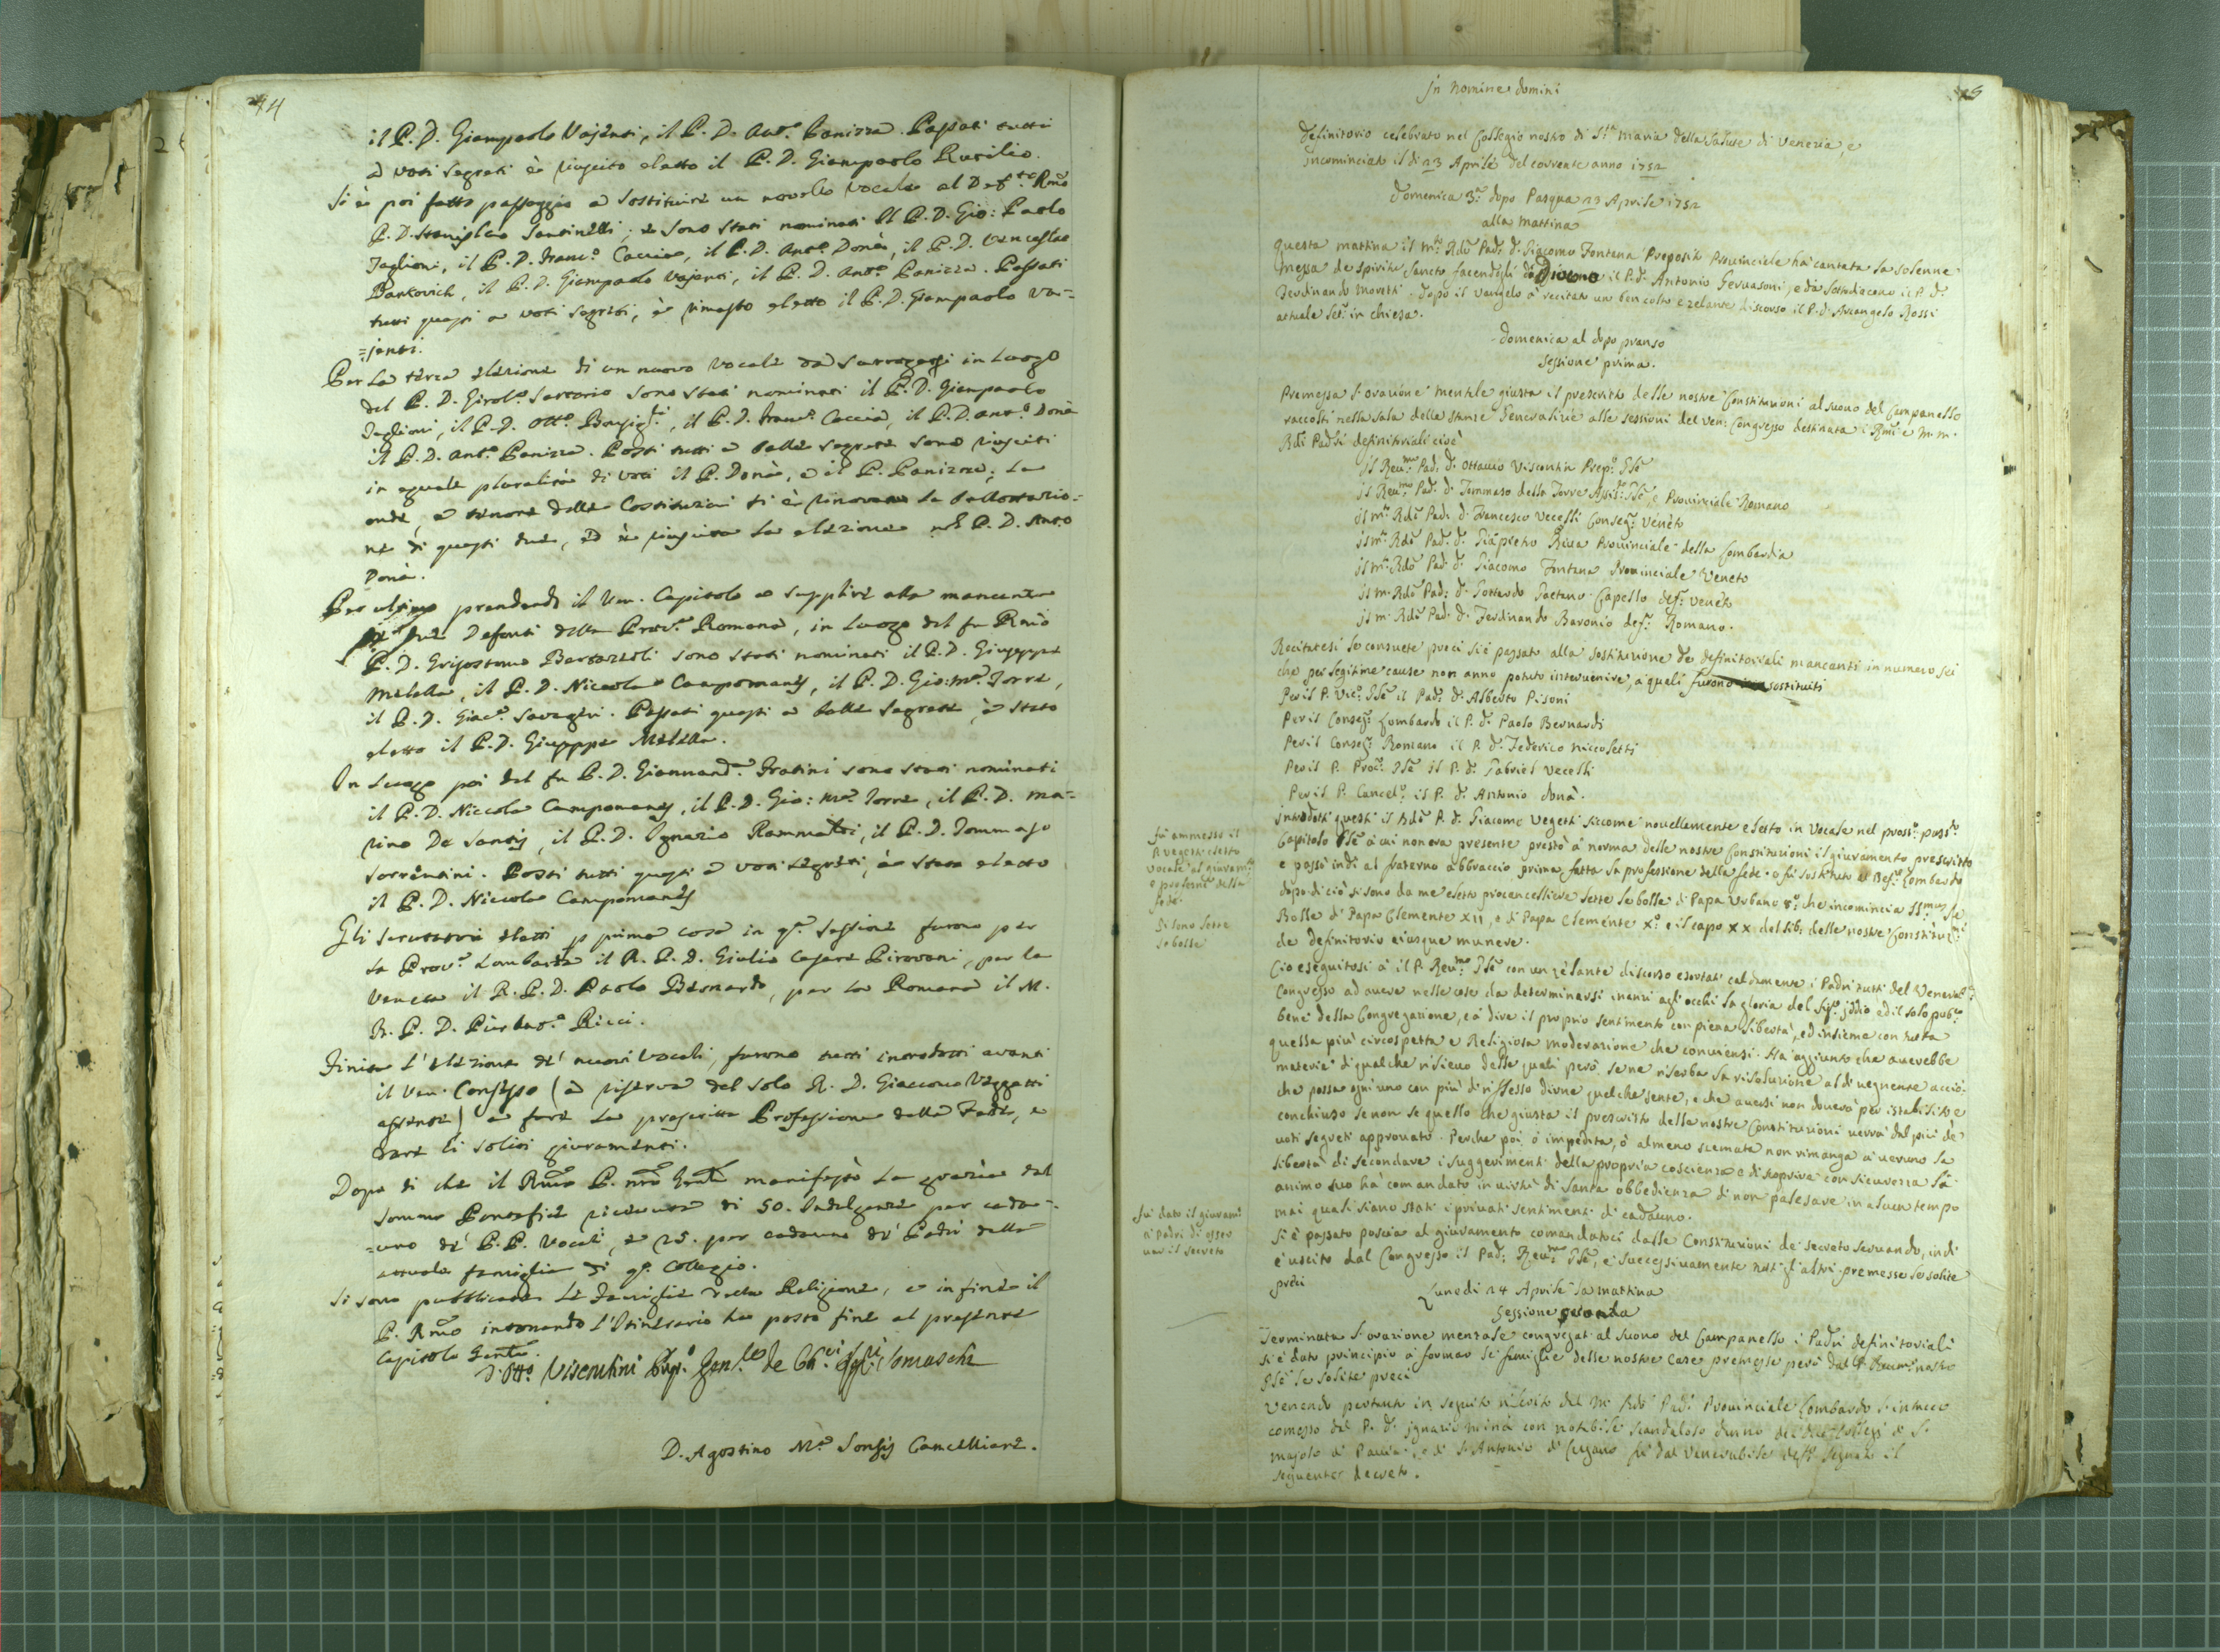 44
il P. D. Giampaolo Vajenti, il P. D. Ant.º Panizza. Passati tutti
a voti segreti è riuscito eletto il P. D. Giampaolo Rusilio.
Si è poi fatto passaggio a sostituire un novello Vocale al Def.to Rmo
P. D. Stanislao Santinelli; e sono stati nominati il P. D. Gio: Paolo
Taglioni, il P. D. Franc.º Caccia, il P. D. Ant.º Donà, il P. D. Venceslao
Barkovich, il P. D. Giampaolo Vajenti, il P. D. Ant.º Panizza. Passati
tutti questi a voti segreti, è rimasto eletto il P. D. Giampaolo Va=
=jenti.
Per la terza elezione di un nuovo Vocale da surrogarsi in luogo
del P. D. Girol.º Sartorio sono stati nominati il P. D. Gianpaolo
Taglioni, il P. D. Ott.º, il P. D. Franc.º Caccia, il P. D. Ant.º Donà
il P. D. Ant.º Panizza. Posti tutti a balle segrete sono riusciti
in eguale pluralità di voti il P. Donà, e il P. Panizza; La
onde, a tenore delle Costituzioni si è rinovata la ballottazio=
ne di questi due, ed è riuscita la elezione nel P. D. Anto
Donà.
Per ultimo prendendo il Ven. Capitolo a supplire alla mancanza
due Defonti della Prov.ª Romana, in luogo del fu Rmo
P. D. Grisostomo Bertazzoli sono stati nominati il P. D. Giuseppe
Melella, il P. D. Niccola Campomanes, il P. D. Gio: M.ª Torre,
il P. D. Giac.º Savageri. Passati questi a balle segrete, è stato
eletto il P. D. Giuseppe Melella.
In luogo poi del fu P. D. Giannand.ª Fratini sono stati nominati
il P. D. Niccola Campomanes, il P. D. Gio: M.ª Torre, il P. D. Ma=
rino De Santis, il P. D. Ignazio Rammatri, il P. D. Tommaso
Sorrentini. Posti tutti questi a voti segreti, è stato eletto
il P. D. Niccola Campomanes
Gli scrutatori eletti p prima cosa in q.ª sessione furono per
la Prov.ª Lombarda il R. P. D. Giulio Cesare Pirovani, per la
Veneta il R. P. D. Paolo Bernardo, per la Romana il M.
R. P. D. Pier Ant.º Ricci.
Finita l'elezione de' nuovi Vocali, furono tutti introdotti avanti
il Ven. Consesso (a riserva del solo R. D. Giacomo Veggetti
assente) a fare la prescritta Professione della Fede, e
dare li soliti giuramenti.
Dopo di che il Rmo P. nro Gnale manifestò la grazia dal
Sommo Pontefice ricevuta di 50. Indulgenze per cada=
=uno de' P. P. Vocali, e 25. per cadauno de' Padri della
attuale famiglia di q.º Collegio.
Si sono pubblicate le Famiglie della Religione, e in fine il
P. Rmo intonando l'Itinerario ha posto fine al presente
Capitolo Gentle.
D. Ott.º Visconti Prep.º Gen.le de Ch.ci Reg.ri Somaschi
D. Agostino M.ª Sonsis Cancelliere.
In Nomine Domini
Definitorio celebrato nel Collegio nostro di S.ta Maria della Salute di Venezia, e
incominciato il dì 23 Aprile del corrente anno 1752
Domenica 3.ª dopo Pasqua 23 Aprile 1752
alla Mattina
Questa mattina il M.to Rdo Pad. D. Giacomo Fontana Preposito Provinciale ha cantata la solenne
Messa de Spiritu Sancto facendogli da Diacono il P. D. Antonio Gervasoni, e da Sottodiacono il P. D.
Ferdinando Moretti. Dopo il Vangelo à recitato un ben colto e zelante discorso il P. D. Arcangelo Rossi
attuale let: in chiesa.
Domenica al dopo pranso
Sessione prima.
Premessa l'orazione mentale giusta il prescritto delle nostre Constituzioni al suono del Campanello
raccolti nella Sala delle stanze Generalizie alle sessioni del Ven: Congresso destinata i Rmi e M. M.
Rdi Padri definitoriali cioè
Il Reu.mo Pad. D. Ottavio Viscontin Prep.º Gle
Il Reu.mo Pad. D. Tommaso della Torre Assi: Gle, e Provinciale Romano
Il M.to Rdo Pad. D. Francesco Vecelli Conseg: Venèto
Il M.to Rdo Pad. D. Gia:pietro Riva Provinciale della Lombardia
Il M.to Rdo Pad. D. Giacomo Fontana Provinciale Veneto
Il M. Rdo Pad. D. Gottardo Gaetano Capello def: Venèto
Il M. Rdo Pad. D. Ferdinando Baronio def: Romano.
Recitatesi le consuete preci si è passato alla sostituzione de definitoriali mancanti in numero sei
che per legitime cause non anno potuto intervenire, a quali furono sostituiti
Per il P. Vic.º Gle il Pad. D. Alberto Pisoni
Per il Conseg: Lombardo il P. D. Paolo Bernardi
Per il Conseg: Romano il P. D. Federico Niccoletti
Per il P. Proc: Gle il P. D. Gabriel Vecelli
Per il P. Cancel: il P. D. Antonio Donà.
Introdotti questi il Rdo P. D. Giacomo Vegetti siccome novellamente eletto in Vocale nel pross.º pass.to
Capitolo Gle a cui non era presente prestò a norma delle nostre Constituzioni il giuramento prescritto
e passò indi al fraterno abbraccio prima fatta la professione della fede. e fu sostituto al Def. Lombardo
dopo di ciò si sono da me eletto procancelliere lette le bolle di Papa Urbano 8.º che incomincia SS.mus
Bolle di Papa Clemente XII, e di Papa Clemente X.º e il capo XX del lib: delle nostre Constituz:
de definitorio eiusque munere.
Cio eseguitosi à il P. Reu.mo Gle con un zelante discorso esortati caldamente i Padri tutti del Venerab:
Congresso ad avere nelle cose da determinarsi inanzi agli occhi la gloria del Sig: Iddio ed il solo pub:
bene della Congregazione, e a dire il proprio sentimento con piena libertà, ed insieme con tutta
quella più circospetta e Religiosa moderazione che conviensi. Ha aggiunto che averebbe
materie di qualche rilievo delle quali però se ne riserba la risoluzione al dì vegnente acciò
che possa ogni uno con più di riflesso dirne quelche sente, e che aversi non doverà per istabilito e
conchiuso se non se quello che giusta il prescritto delle nostre Constituzioni verrà dal più de
voti segreti approvato. Perche poi ò impedita, ò almeno scemata non rimanga a veruno la
libertà di secondare i suggerimenti della propria coscienza e di scoprire con sicurezza l'à
animo suo ha comandato in virtù di santa obbedienza di non palesare in alcun tempo
mai quali siano stati i privati sentimenti di cadauno.
Si è passato poscia al giuramento comandatoci dalle Constituzioni de secreto servando, indi
è uscito dal Congresso il Pad. Reu.mo Gle, e successivamente tutti gl'altri premesse le solite
preci
Lunedì 24 Aprile la mattina
Sessione seconda
Terminata l'orazione mentale congregati al suono del Campanello i Padri definitoriali
si è dato principio a formar le famiglie delle nostre Case premesse però dal P. Reum.º nostro
Gle le solite preci
Venendo pertanto in seguito riferito dal M. Rdo Pad. Provinciale Lombardo l'intacco
comesso dal P. D. Ignazio Minà con notabile scandaloso danno dei due Collegi di S.
Majolo di Pavia, e di S. Antonio di Lugano fù dal Venerabile deff.º segnato il
seguente decreto.
fu ammesso il
P. Vegetti eletto
Vocale al giuram.to
e professne della
fede.
Si sono lette
le bolle
fu dato il giuram.
a Padri di osser
var il secreto